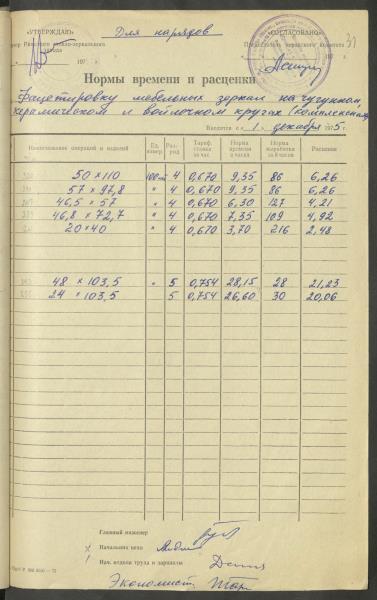 Для нарядов
„УТВЕРЖДАЮ“
„СОГЛАСОВАНО“
завода
197 г.
197 г.
Нормы времени и расценки
Фацетировку мебельных зеркал на чугунном,
керамическом и войлочном кругах (комплексная)
Вводятся с „1“ декабря 1975 г.
Наименование операций и изделий
Ед. измер.
Раз- ряд
Тариф. ставка за час
Норма времени в часах
Норма выработки за 8 часов
Расценки
50 × 110 100 4 0,670 9,35 86 6,26
57 × 97,8 " 4 0,670 9,35 86 6,26
46,5 × 57 " 4 0,670 6,30 127 4,21
46,8 × 72,7 " 4 0,670 7,35 109 4,92
20 × 40 " 4 0,670 3,70 216 2,48
48 × 103,5 " 5 0,754 28,15 28 21,23
24 × 103,5 5 0,754 26,60 30 20,06
Главный инженер
Начальник цеха
Нач. отдела труда и зарплаты
Экономист